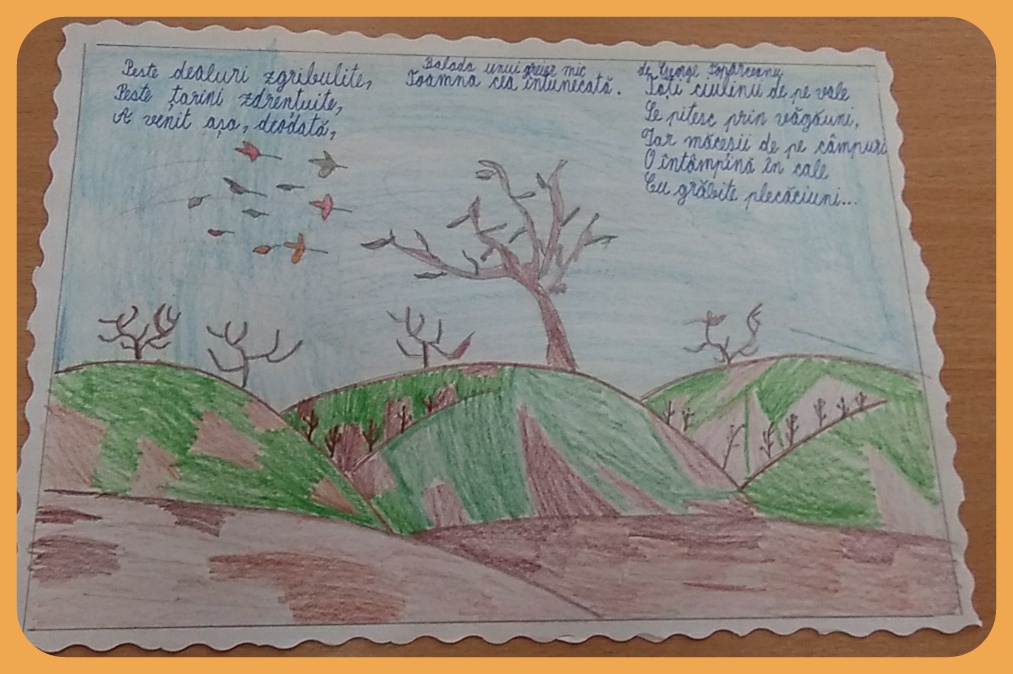 Balada unui greier mic
de George Topârceanu
Peste dealuri zgribulite,
Peste țarini zdrențuite,
A venit așa, deodată,
Toamna cea întunecată.
Toți ciulinii de pe vale
Se pitesc prin văgăuni,
Iar măceșii de pe câmpuri
O întâmpină în cale
Cu grăbite plecăciuni...